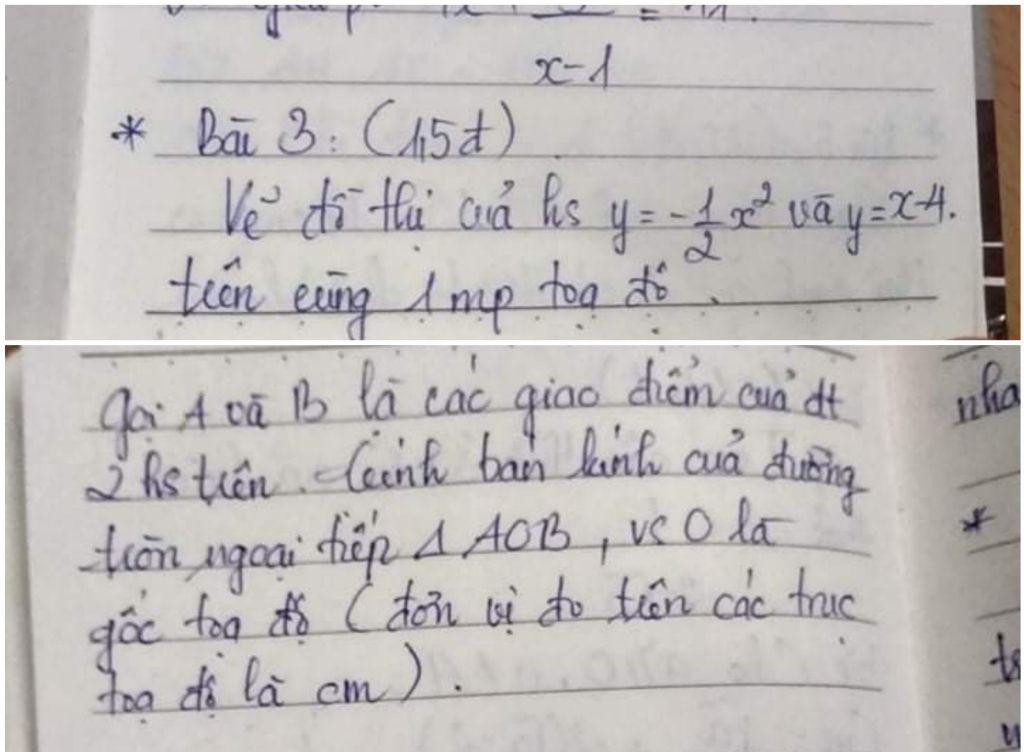 = 11.
x-1
* Bài 3: (1,5đ)
Vẽ đồ thị của hs y = -1/2 x² và y=x-4.
trên cùng 1 mp toạ độ.
Gọi A và B là các giao điểm của đt
2 hs trên. tính bán kính của đường
tròn ngoại tiếp Δ AOB, vs O là
gốc toạ độ (đơn vị đo trên các trục
toạ độ là cm).
nha
*